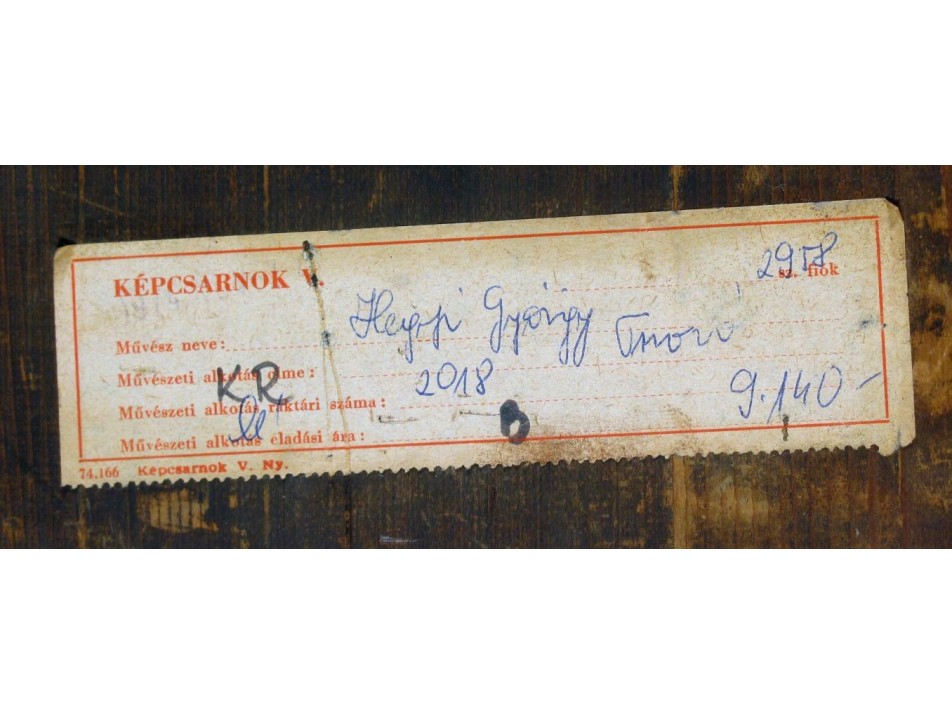 KÉPCSARNOK V.
2958 sz. fiók
Művész neve: Hegyi György
Művészeti alkotás címe:
KR
Művészeti alkotás raktári száma: 2018
Művészeti alkotás eladási ára: 9.140-
74.166 Képcsarnok V. Ny.